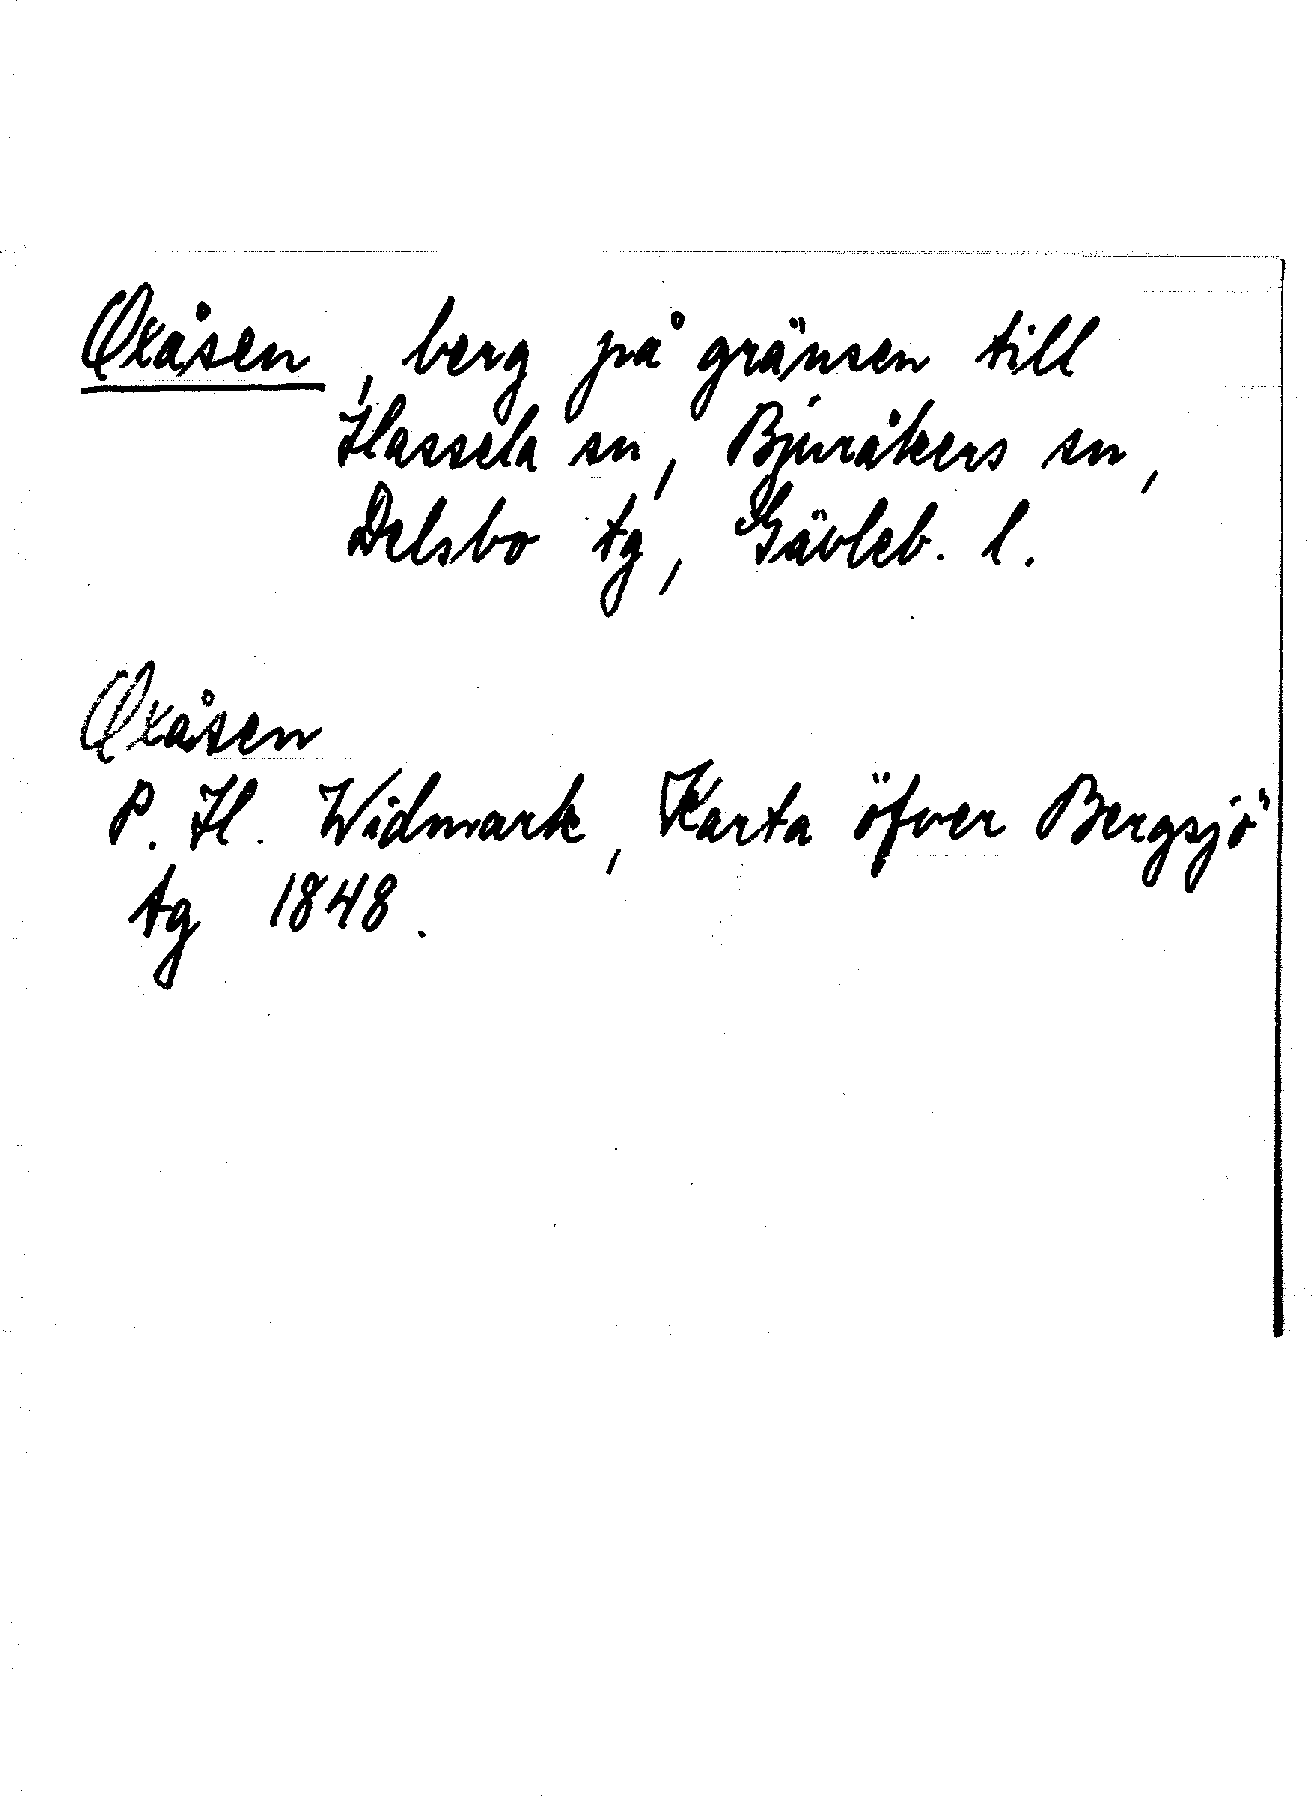 Oxåsen, berg på gränsen till
Hassela sn, Bjuråkers sn,
Delsbo tg, Gävleb. l.
Oxåsen
P. H. Widmark, Karta öfver Bergsjö
tg 1848.